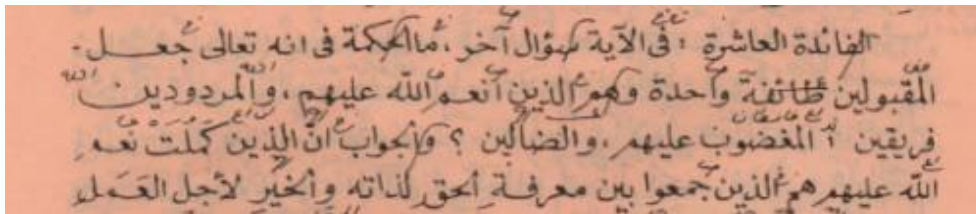 الفائدة العاشرة : فى الآية سؤال آخر ، ما الحكمة فى انه تعالى جعل
المقبولين طائفة واحدة وهم الذين أنعم الله عليهم ، والمردودين
فريقين المغضوب عليهم ، والضالين ؟ والجواب انّ الذين كملت نعم
الله عليهم هم الذين جمعوا بين معرفة الحق لذاته والخير لأجل العَمَل